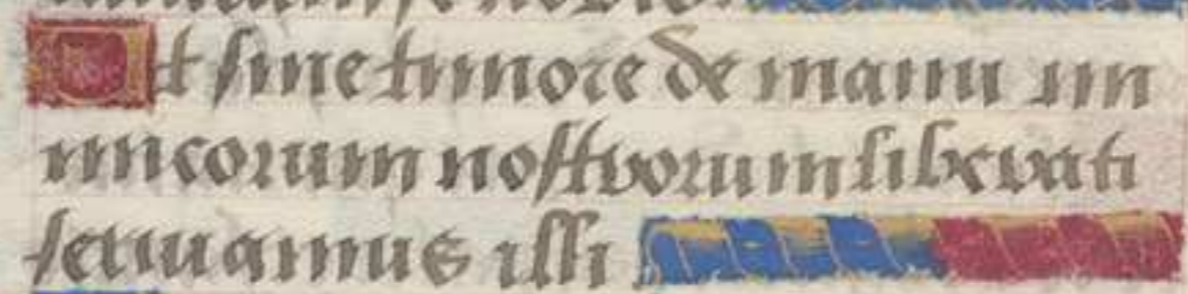 Ut sine timore de manu ini
micorum nostrorum liberati
seruiamus illi